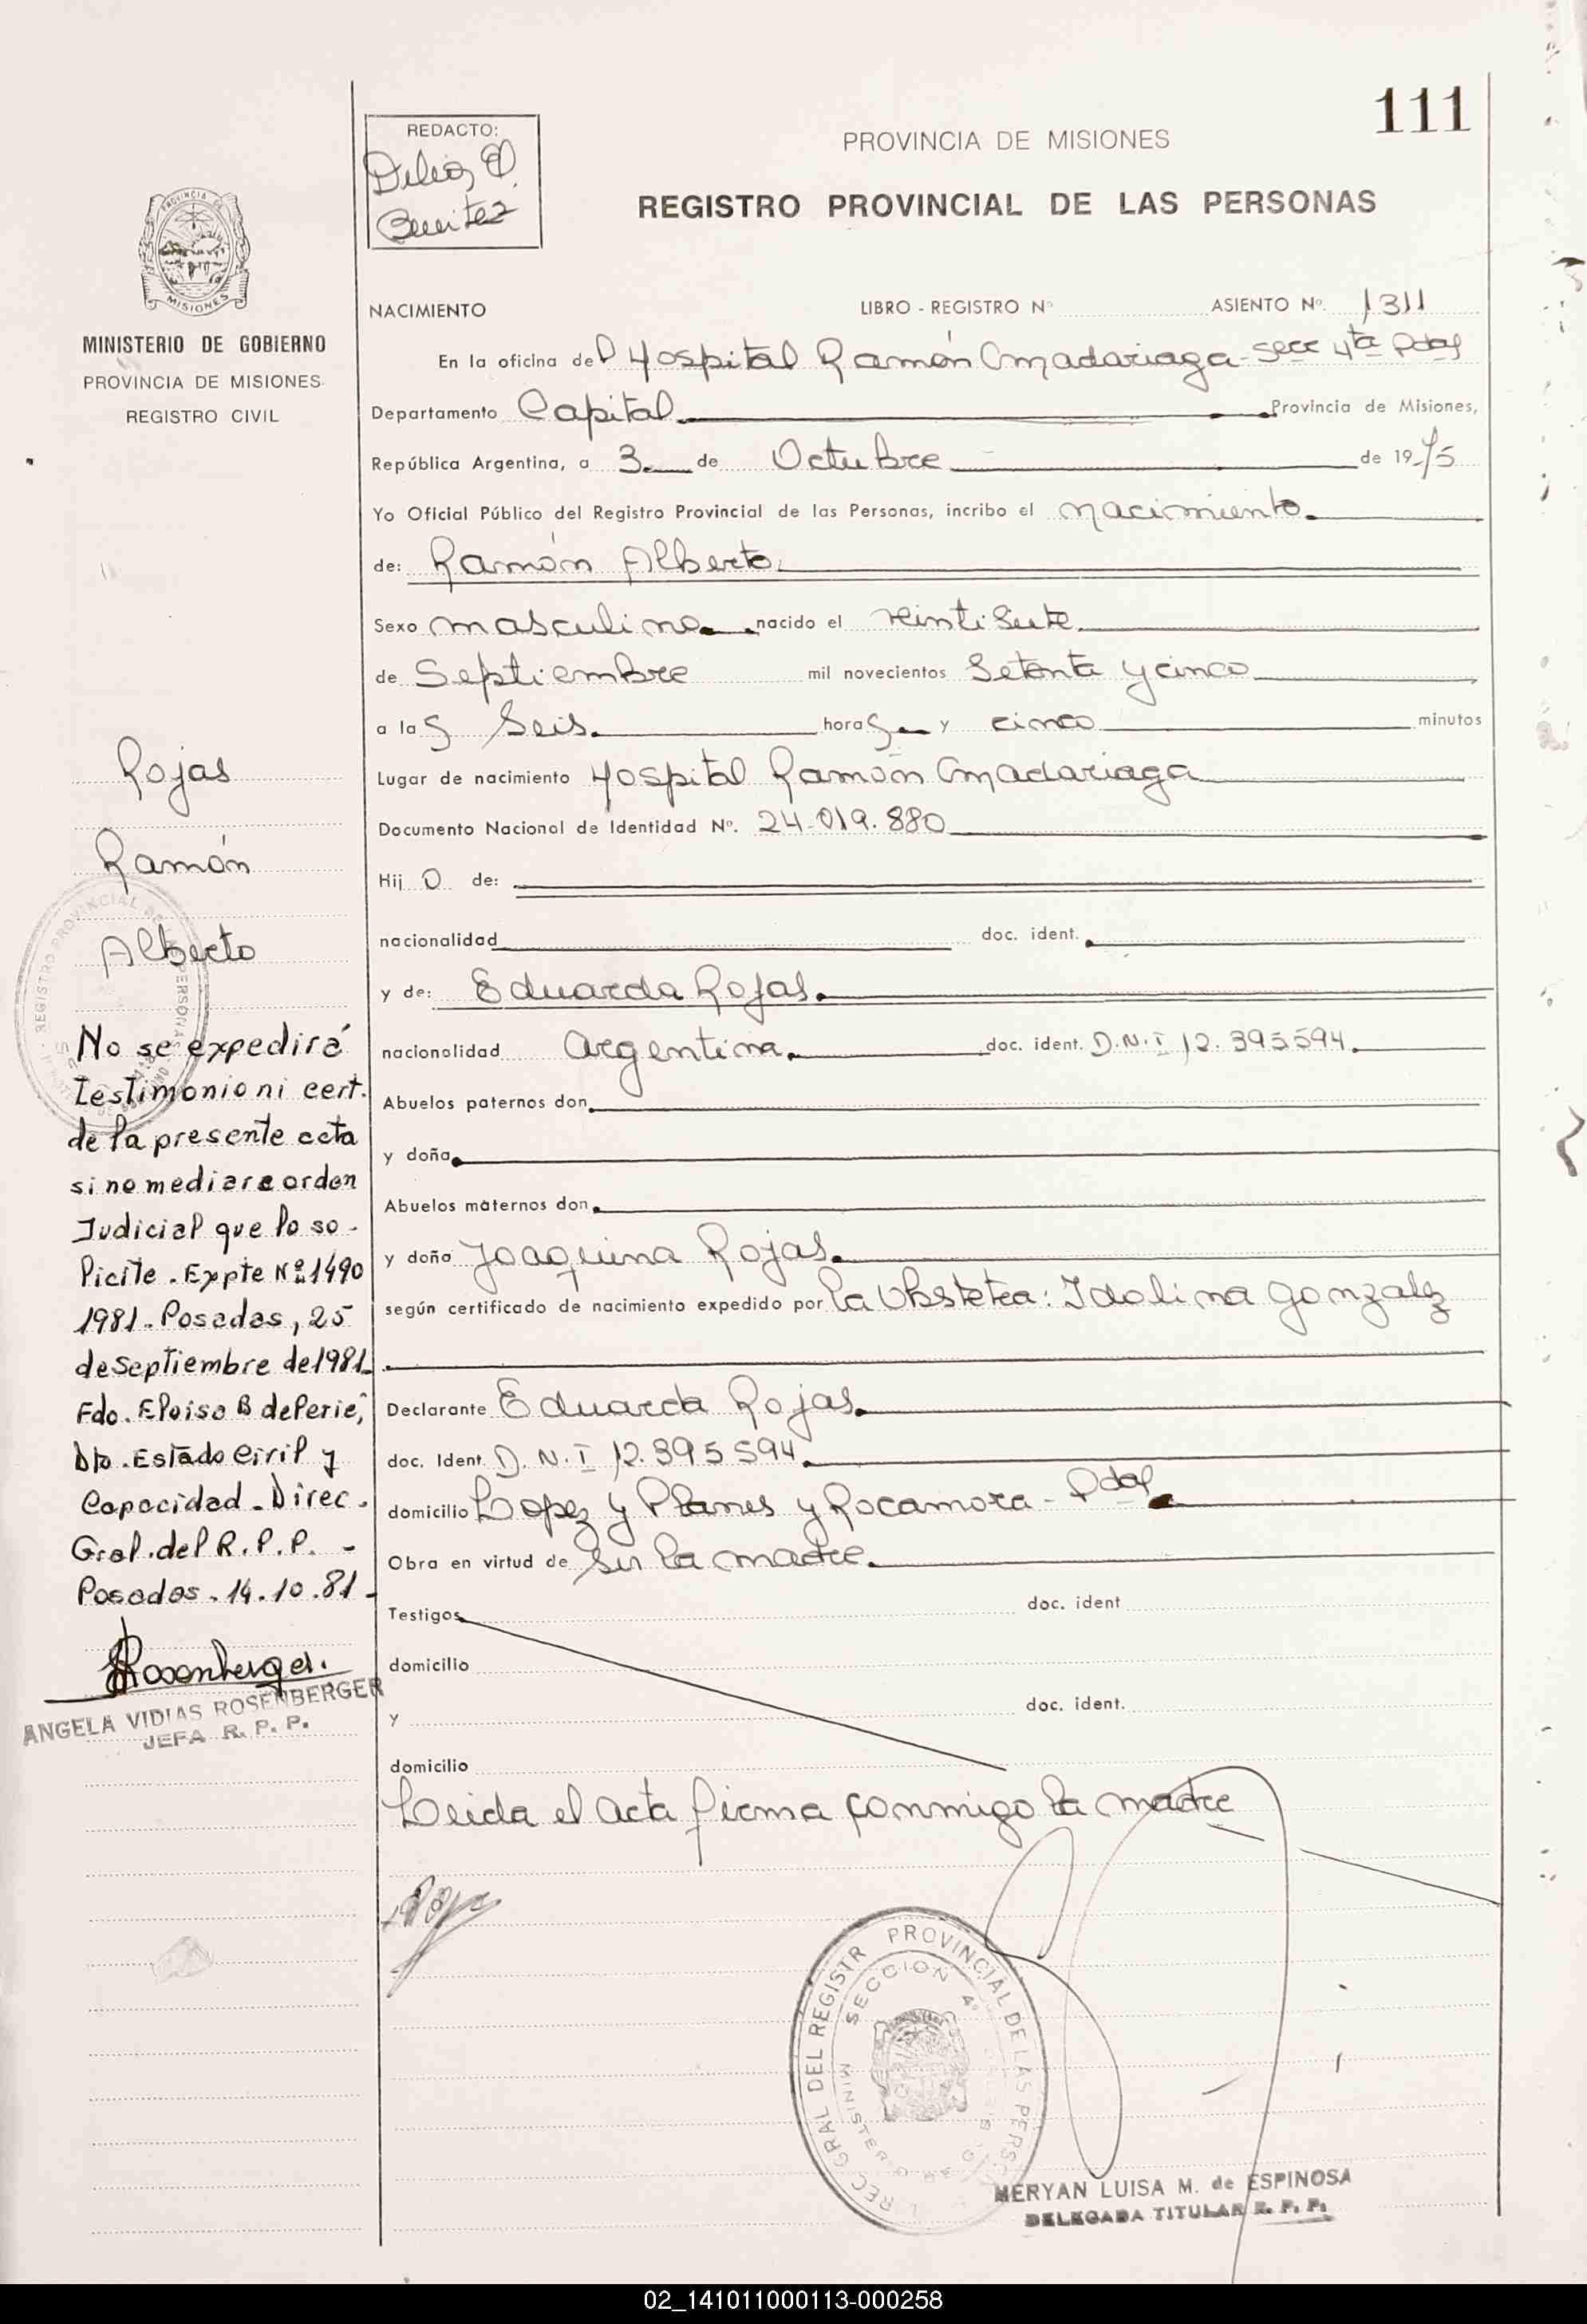 111
REDACTO:
Delia
Benitez
PROVINCIA DE MISIONES
REGISTRO PROVINCIAL DE LAS PERSONAS
PROVINCIA DE
MISIONES
MINISTERIO DE GOBIERNO
PROVINCIA DE MISIONES
REGISTRO CIVIL
Rojas
Ramón
Alberto
No se expedirá
testimonio ni cert.
de la presente acta
si no mediara orden
Judicial que lo so-
licite. Expte Nº 1490
1981. Posadas, 25
de Septiembre de 1981
Fdo. Eloisa B de Perie,
Dto. Estado Civil y
Capacidad - Direc.
Gral. del R. P. P. -
Posadas. 14.10.81-
Rosenberger.
ANGELA VIDIAS ROSENBERGER
JEFA R. P. P.
NACIMIENTO LIBRO - REGISTRO Nº ASIENTO Nº. 1311
En la oficina del Hospital Ramón Madariaga - Secc 4ta Pdas
Departamento Capital Provincia de Misiones,
República Argentina, a 3 de Octubre de 1975
Yo Oficial Público del Registro Provincial de las Personas, incribo el nacimiento.
de: Ramón Alberto
Sexo masculino nacido el veintisiete
de Septiembre mil novecientos Setenta y cinco
a las Seis. horas y cinco minutos
Lugar de nacimiento Hospital Ramón Madariaga
Documento Nacional de Identidad Nº. 24.019.880
Hijo de:
nacionalidad doc. ident.
y de: Eduarda Rojas.
nacionolidad Argentina. doc. ident. D.N.I 12.395594.
Abuelos paternos don
y doña
Abuelos maternos don
y doña Joaquina Rojas.
según certificado de nacimiento expedido por la Obstetra: Idolina Gonzalez
Declarante Eduarda Rojas.
doc. Ident. D.N.I 12.395594.
domicilio Lopez y Planes y Rocamora - Pdas
Obra en virtud de ser la madre.
Testigos doc. ident
domicilio
y doc. ident.
domicilio
Leida el acta firma conmigo la madre
REC GRAL DEL REGISTR PROVINCIAL DE LAS PERS
SECCION 4º
MINISTERIO DE
MERYAN LUISA M. de ESPINOSA
DELEGADA TITULAR R. P. P.
02_141011000113-000258